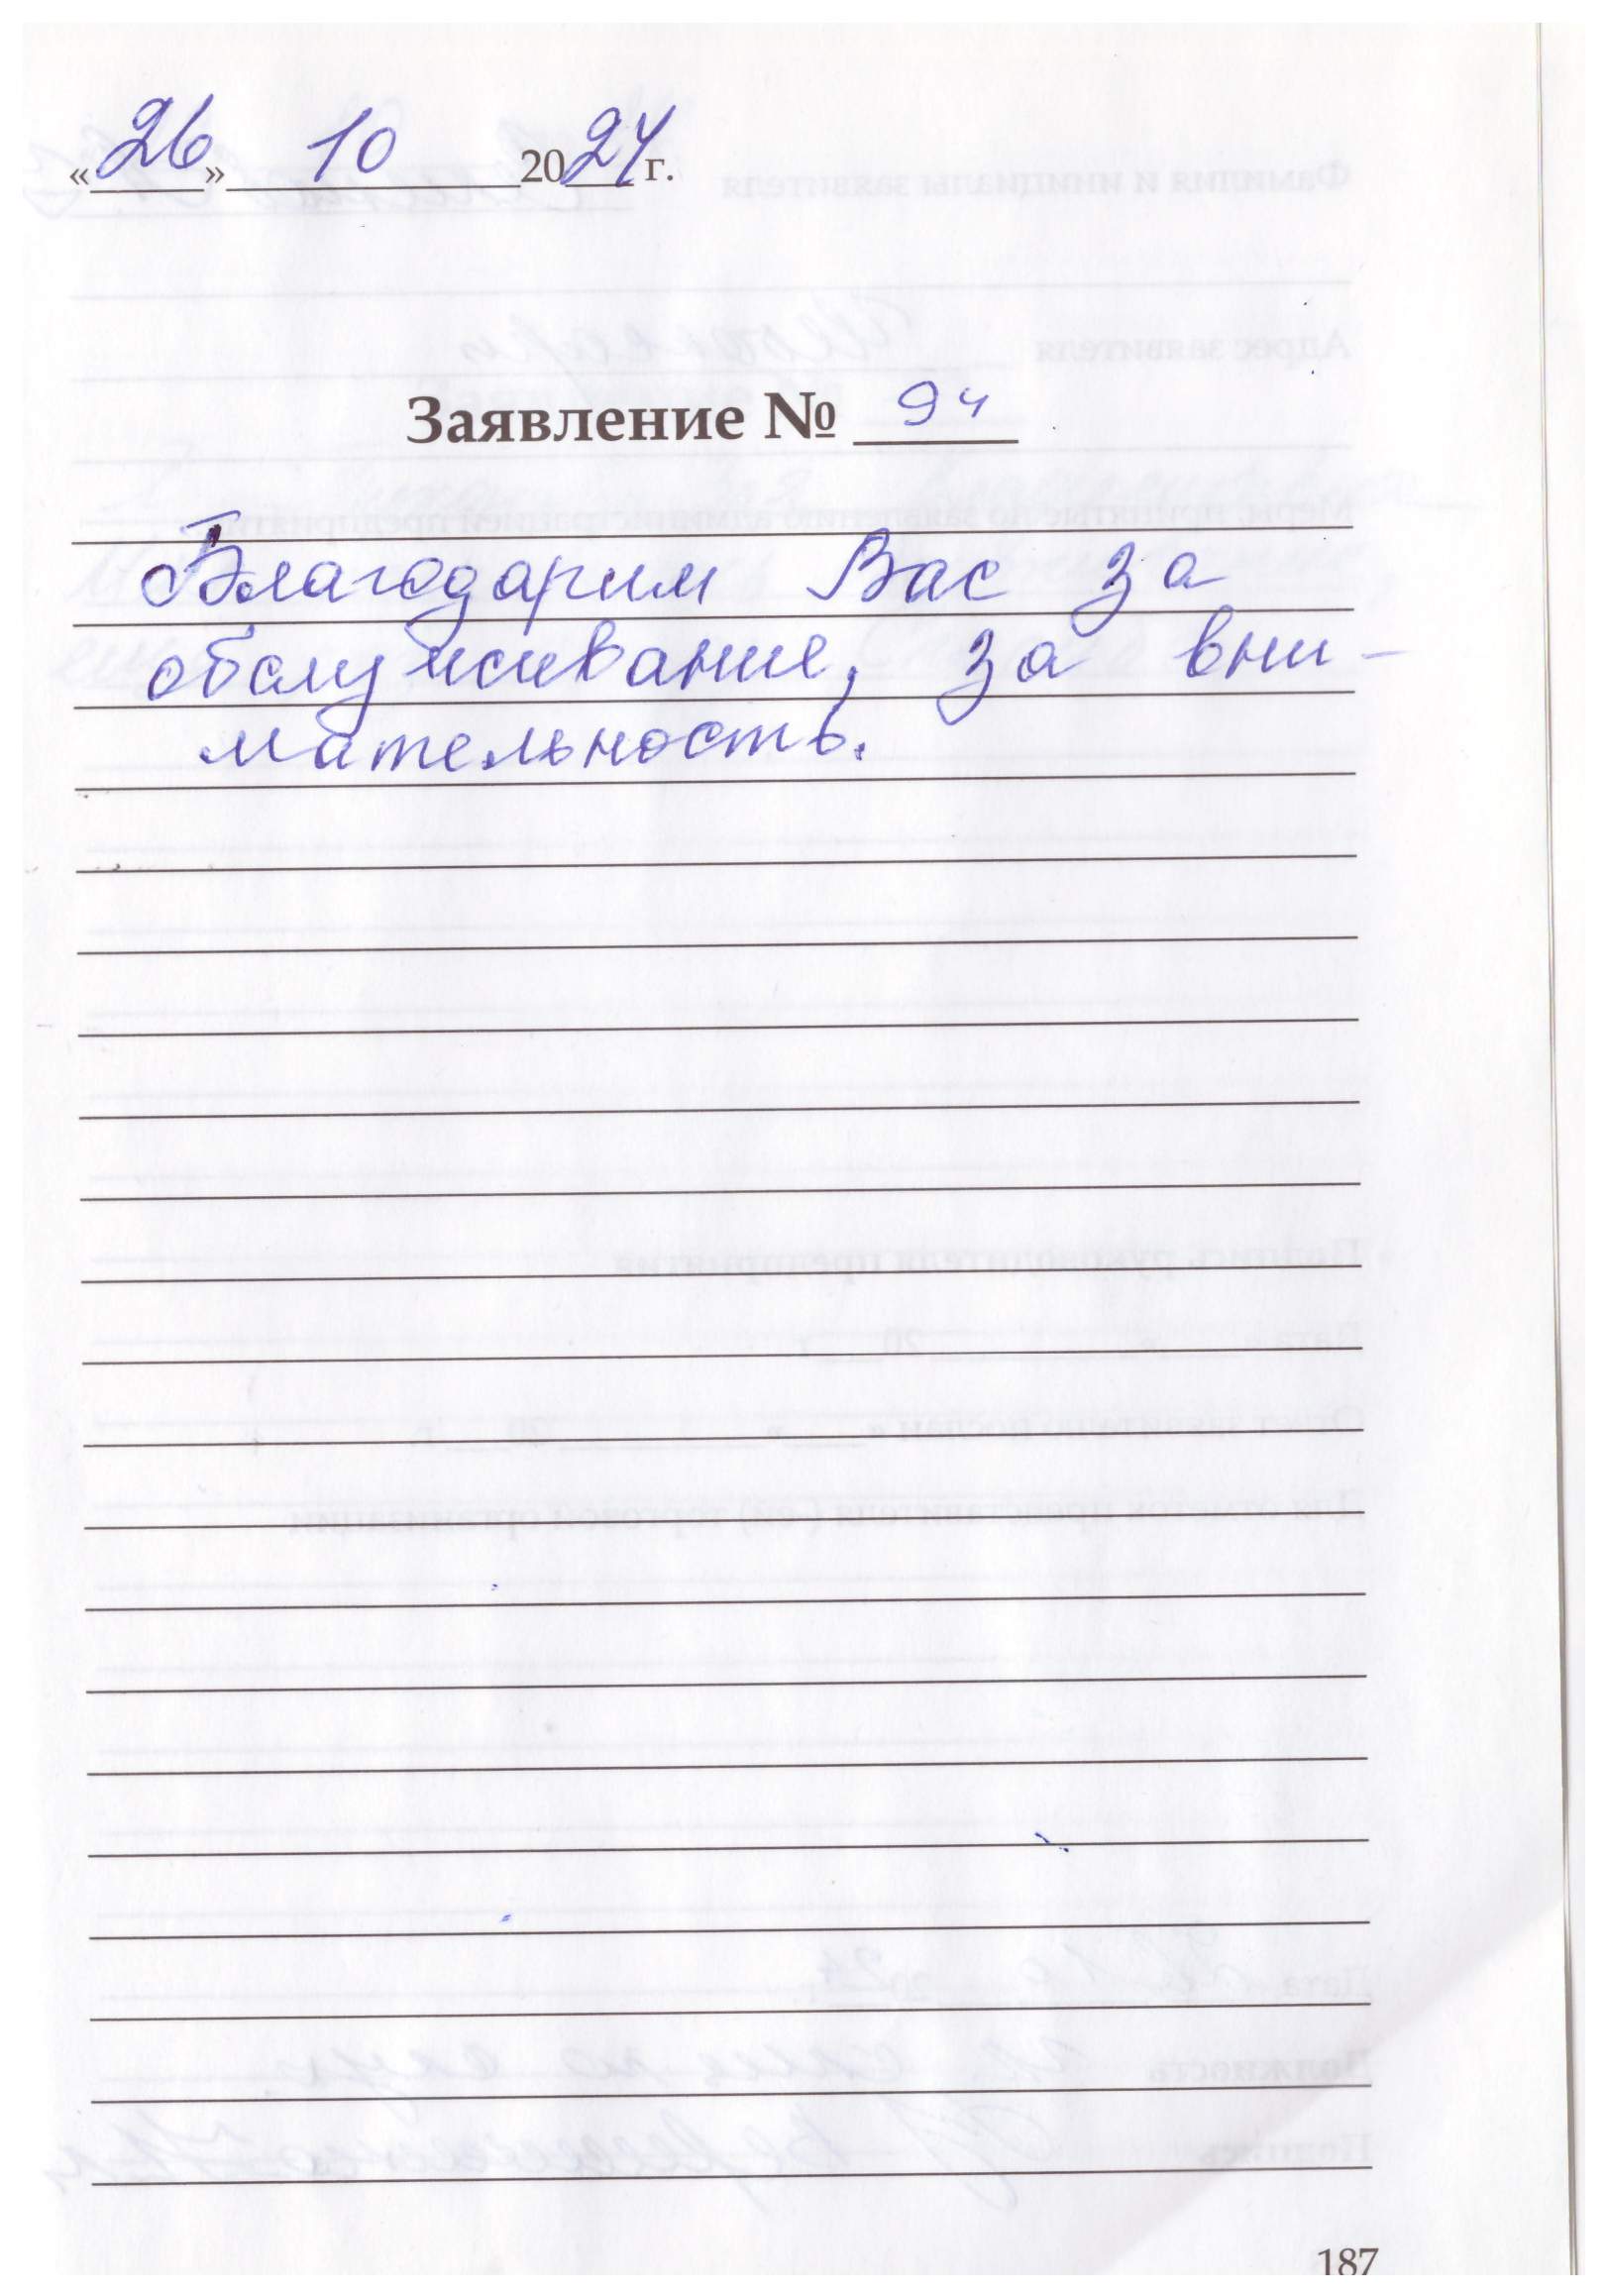 «26» 10 2024 г.
Заявление № 94
Благодарим Вас за
обслуживание, за вни-
мательность.
187